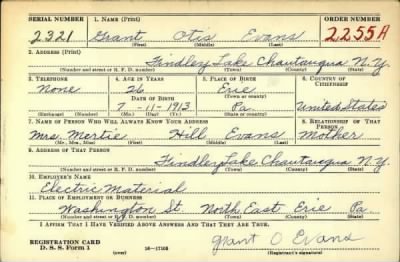 SERIAL NUMBER 1. NAME (Print) ORDER NUMBER
2321 Grant Otis Evans 2255A
(First) (Middle) (Last)
2. ADDRESS (Print)
Findley Lake Chautauqua N.Y.
(Number and street or R. F. D. number) (Town) (County) (State)
3. TELEPHONE 4. AGE IN YEARS 5. PLACE OF BIRTH 6. COUNTRY OF CITIZENSHIP
None 26 Erie
DATE OF BIRTH (Town or county)
7-11-1913 Pa. United States
(Exchange) (Number) (Mo.) (Day) (Yr.) (State or country)
7. NAME OF PERSON WHO WILL ALWAYS KNOW YOUR ADDRESS 8. RELATIONSHIP OF THAT PERSON
Mrs. Mertie Hill Evans Mother
(Mr., Mrs., Miss) (First) (Middle) (Last)
9. ADDRESS OF THAT PERSON
Findley Lake Chautauqua N.Y.
(Number and street or R. F. D. number) (Town) (County) (State)
10. EMPLOYER'S NAME
Electric Material
11. PLACE OF EMPLOYMENT OR BUSINESS
Washington St. North East Erie Pa
(Number and street or R. F. D. number) (Town) (County) (State)
I AFFIRM THAT I HAVE VERIFIED ABOVE ANSWERS AND THAT THEY ARE TRUE.
Grant O Evans
REGISTRATION CARD
D. S. S. Form 1 (over) 16-17105 (Registrant's signature)